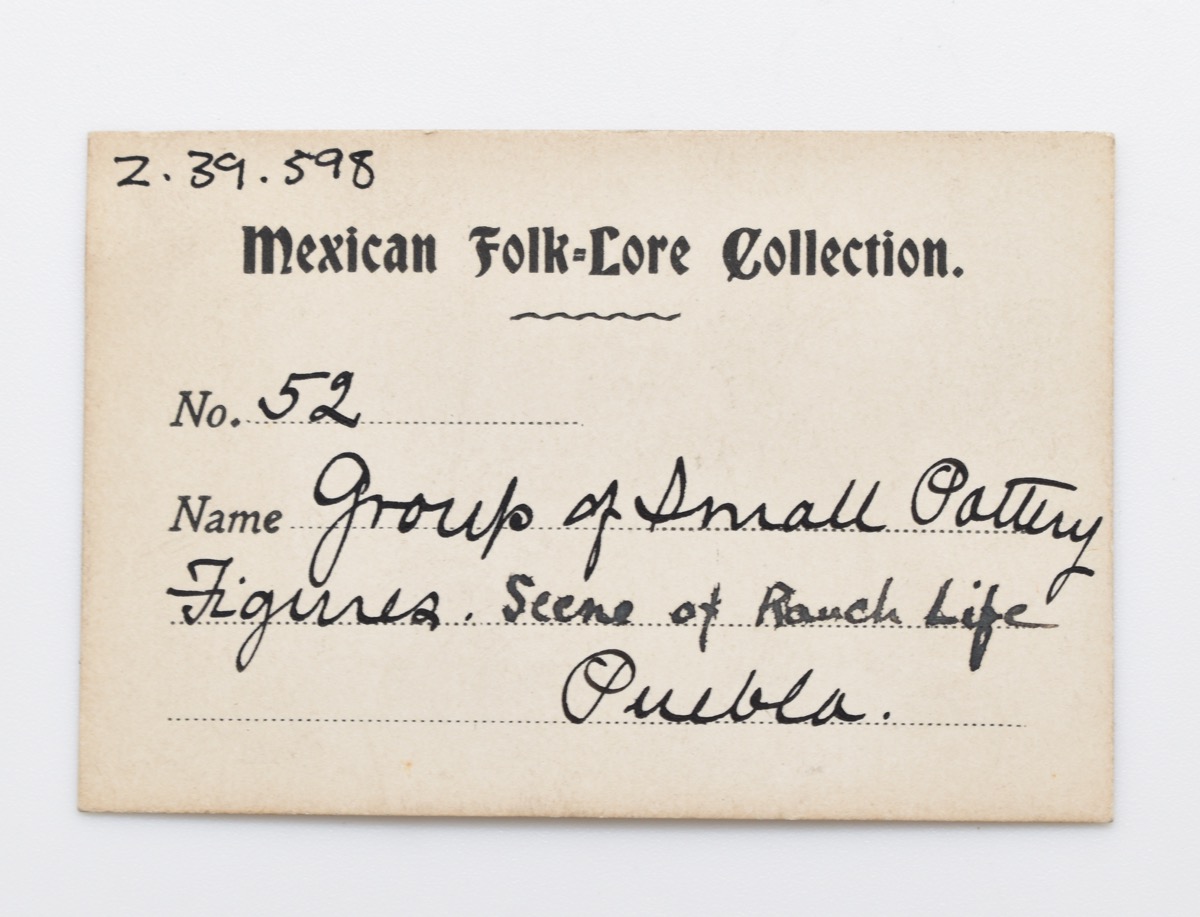 Z.39.598
Mexican Folk=Lore Collection.
No. 52
Name Group of Small Pottery
Figures. Scene of Ranch Life
Puebla.